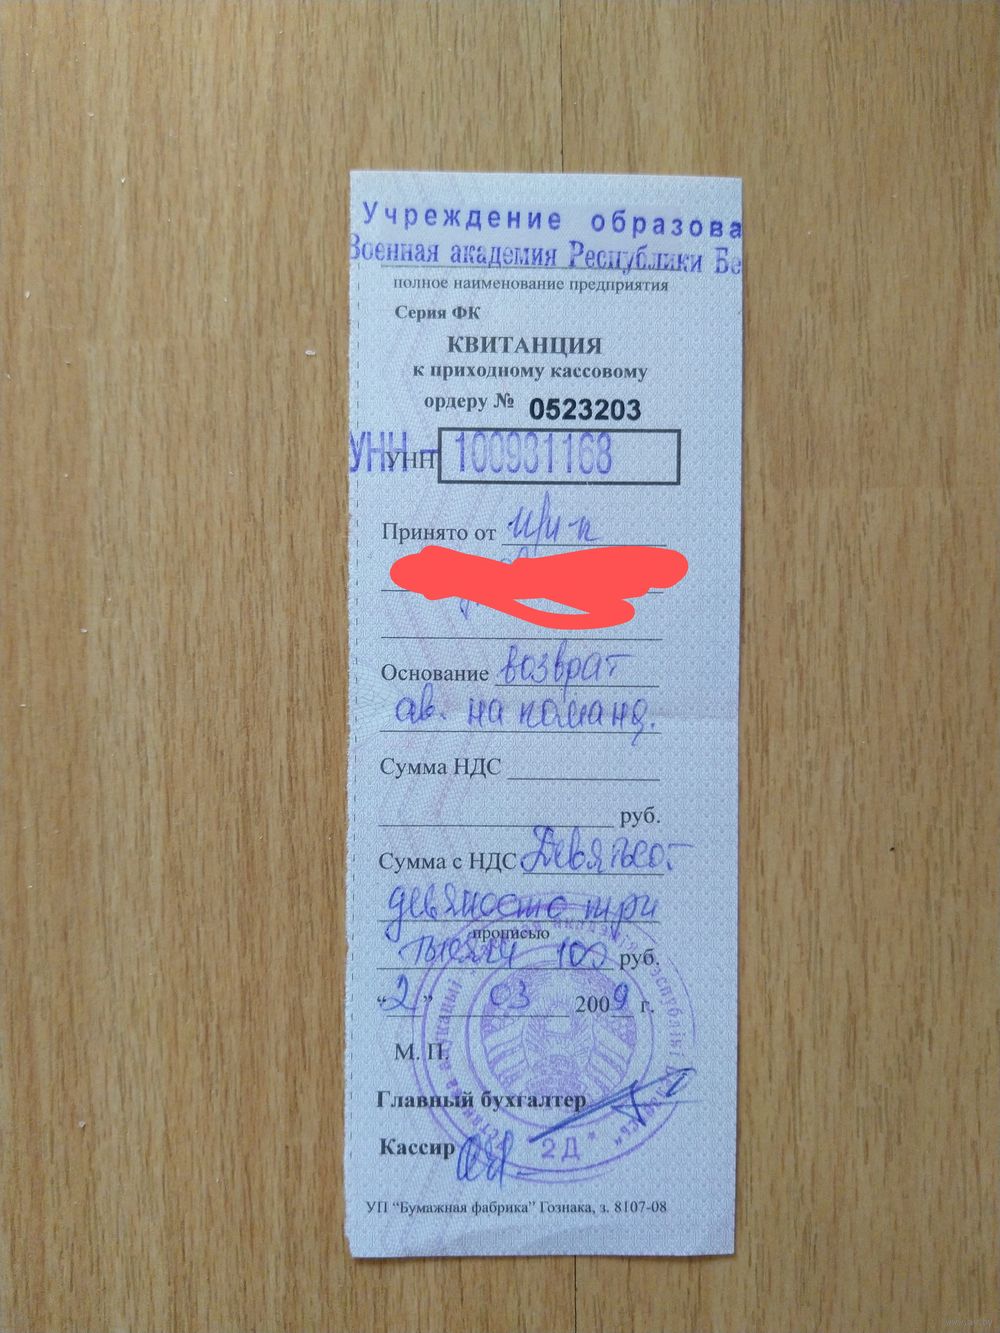 Учреждение образова
Военная академия Республики Бе
полное наименование предприятия
Серия ФК
КВИТАНЦИЯ
к приходному кассовому
ордеру № 0523203
УНН -
УНН 100931168
Принято от
Основание возврат
ав. на команд.
Сумма НДС
руб.
Сумма с НДС Девятьсот
девяносто три
прописью
тысячи 100 руб.
“2” 03 2009 г.
М. П.
Главный бухгалтер
Кассир
2Д *
УП “Бумажная фабрика” Гознака, з. 8107-08